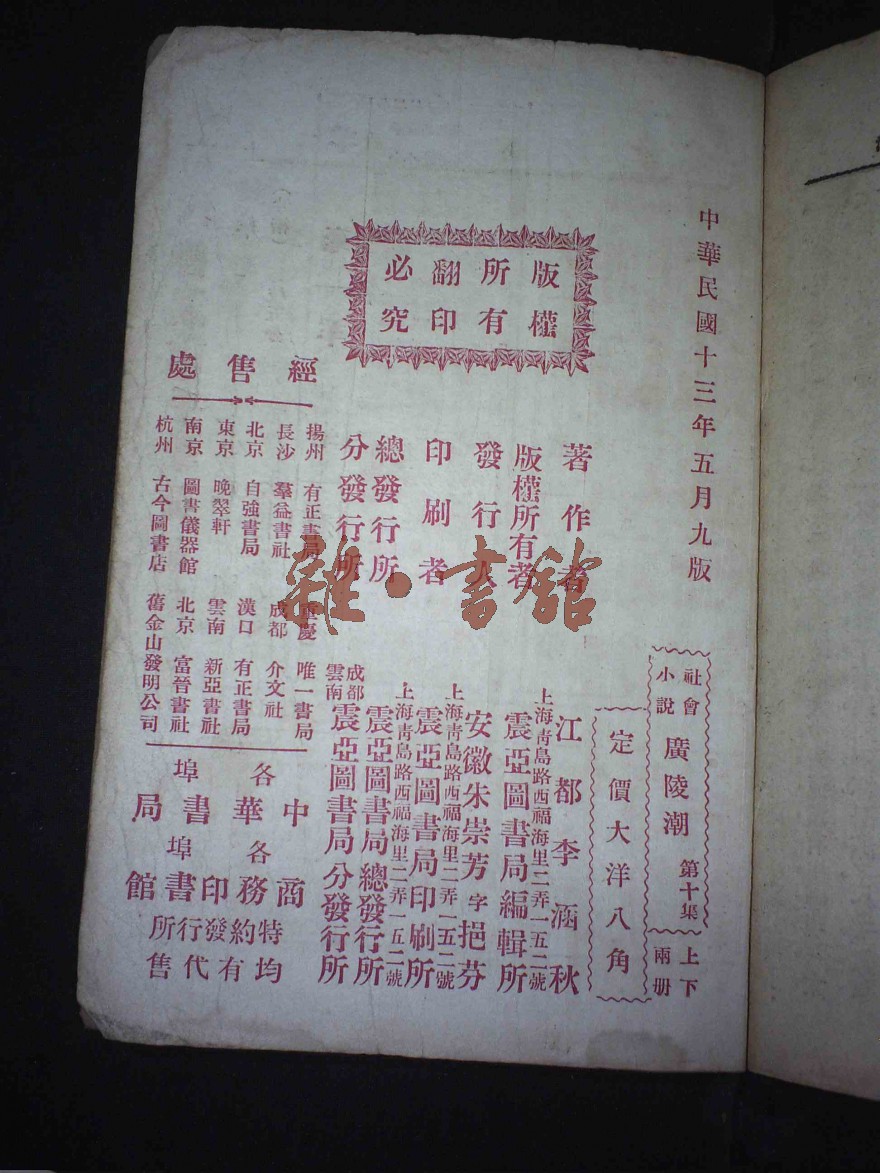 中華民國十三年五月九版
社會小說 廣陵潮 第十集 上下兩册
定價大洋八角
版權
所有
翻印
必究
著作者 江都李涵秋
版權所有者 上海青島路西福海里二弄一五二號 震亞圖書局編輯所
發行人 安徽朱崇芳字挹芬
印刷者 上海青島路西福海里二弄一五二號 震亞圖書局印刷所
總發行所 上海青島路西福海里二弄一五二號 震亞圖書局總發行所
分發行所 成都 雲南 震亞圖書局分發行所
經售處
揚州 有正書局 重慶 唯一書局
長沙 羣益書社 成都 介文社
北京 自強書局 漢口 有正書局
東京 晚翠軒 雲南 新亞書社
南京 圖書儀器館 北京 富晉書社
杭州 古今圖書店 舊金山發明公司
各埠中華書局
各埠商務印書館
特約發行所
均有代售
雜·書館